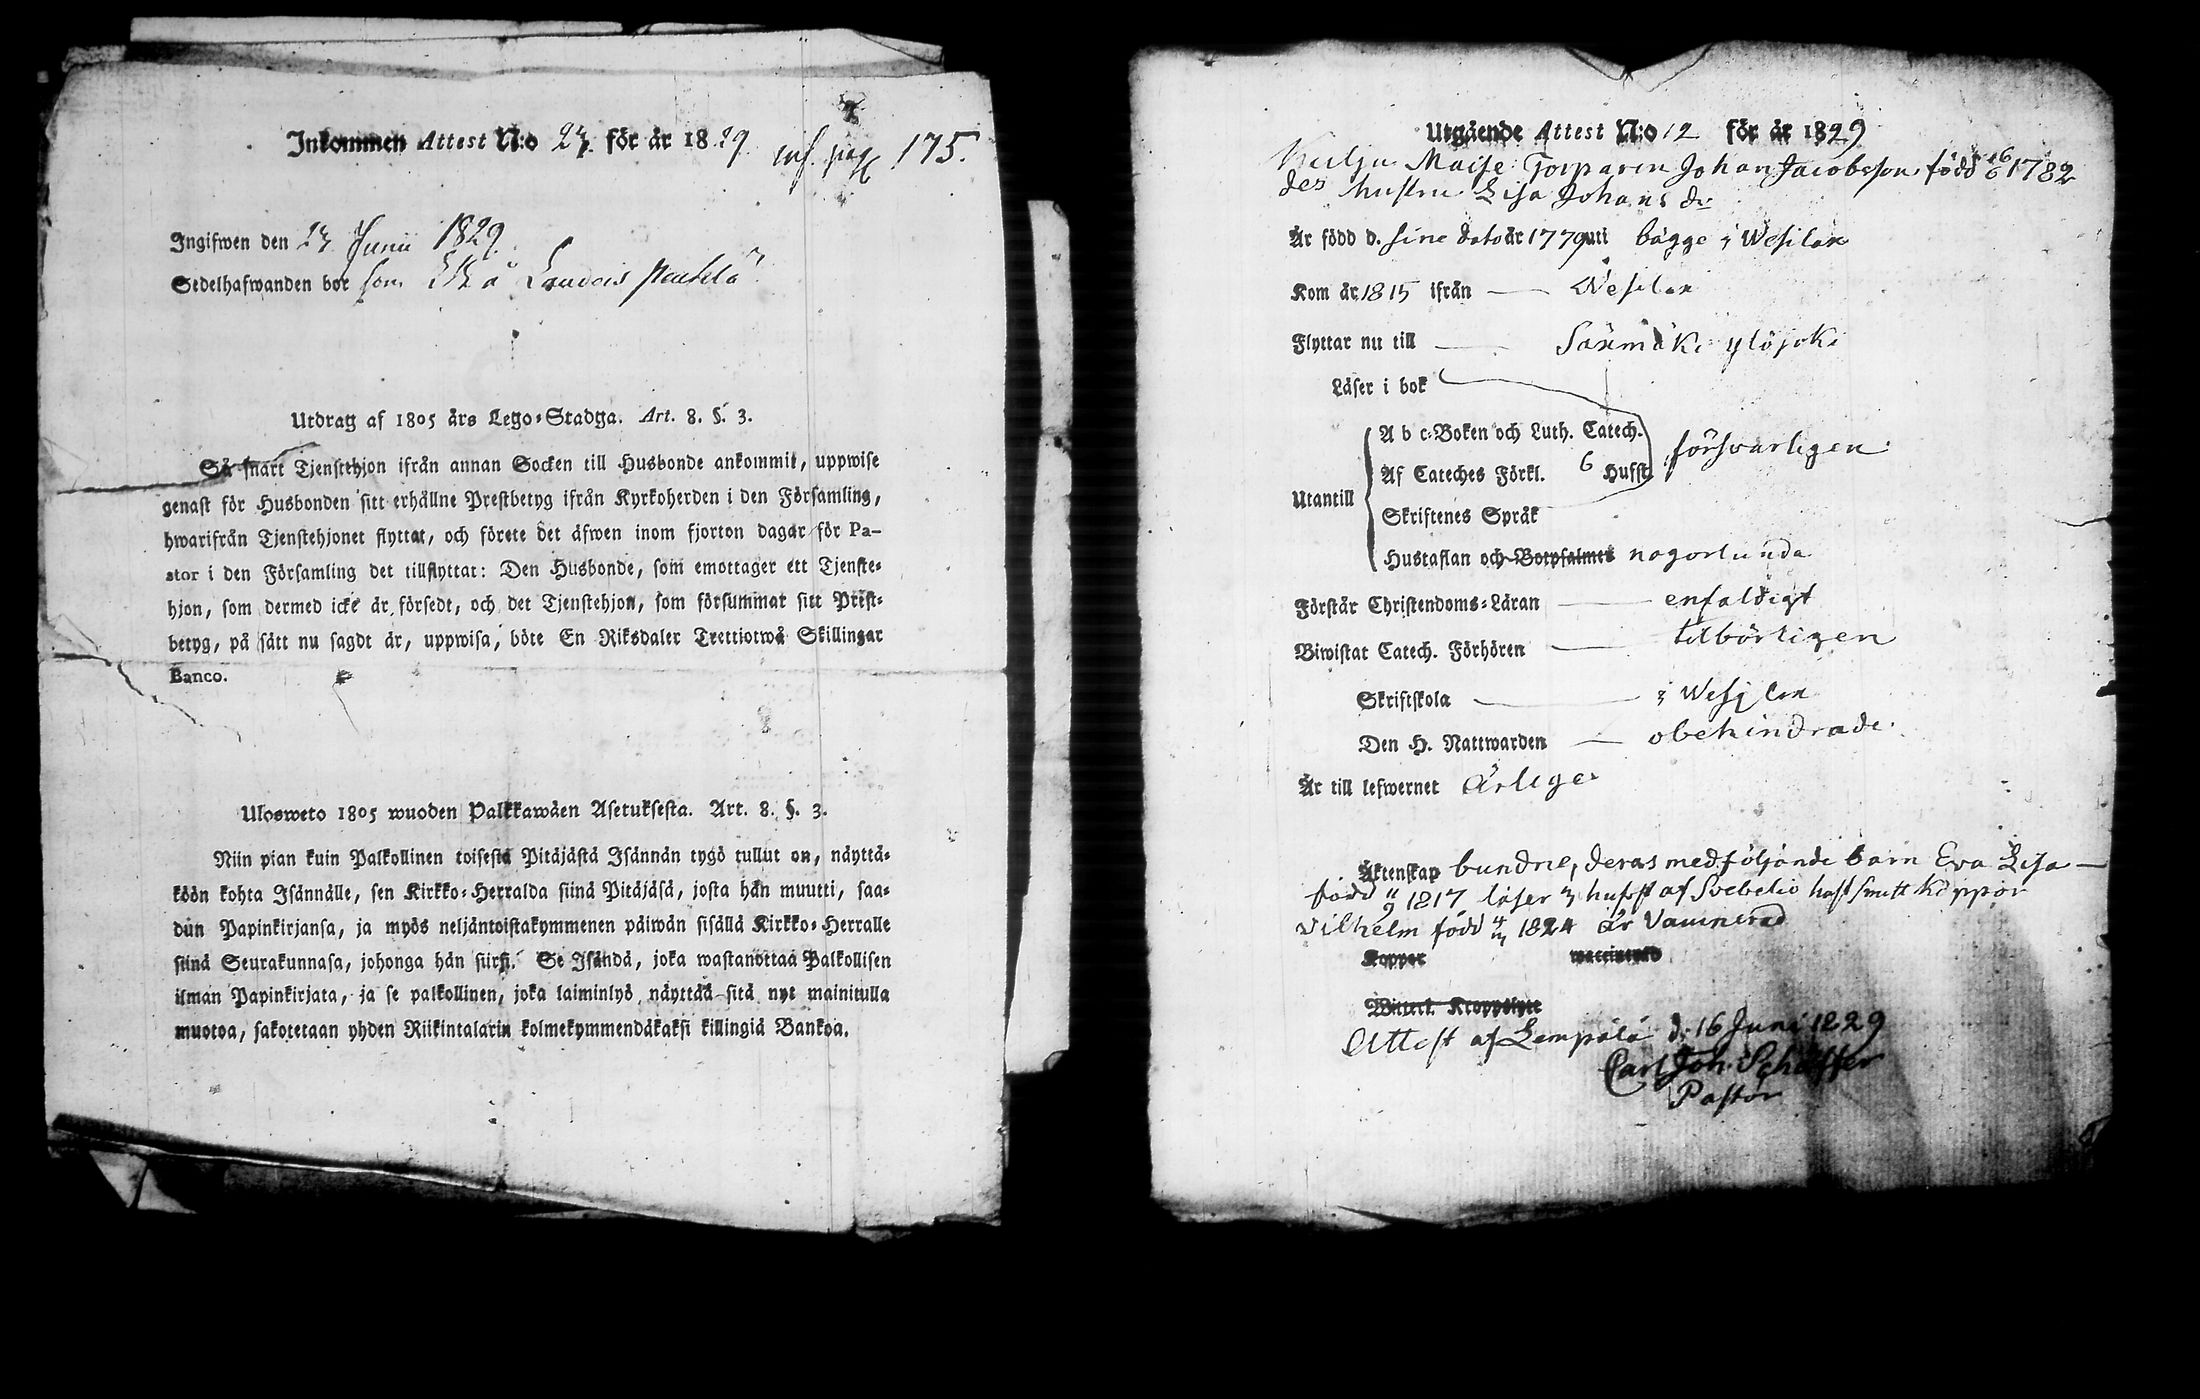 Inkommen Attest N:o 23. för år 1829. inf. pag 175.
Ingifwen den 23 Junii 1829.
Sedelhafwanden bor som
Utdrag af 1805 års Lego=Stadga. Art. 8. §. 3.
Så snart Tjenstehjon ifrån annan Socken till Husbonde ankommit, uppwise
genast för Husbonden sitt erhållne Prestbetyg ifrån Kyrkoherden i den Församling,
hwarifrån Tjenstehjonet flyttat, och förete det äfwen inom fjorton dagar för Pa-
stor i den Församling det tillflyttat: Den Husbonde, som emottager ett Tjenste=
hjon, som dermed icke är försedt, och det Tjenstehjon, som försummar sitt Prest=
betyg, på sätt nu sagdt är, uppwisa, böte En Riksdaler Trettiotwå Skillingar
Banco.
Ulosweto 1805 wuoden Palkkawäen Asetuksesta. Art. 8. §. 3.
Niin pian kuin Palkollinen toisesta Pitäjästä Isännän tygö tullut on, näyttä=
köön kohta Isännälle, sen Kirkko=Herralda siinä Pitäjäsä, josta hän muutti, saa=
dun Papinkirjansa, ja myös neljäntoistakymmenen päiwän sisällä Kirkko=Herralle
siinä Seurakunnasa, johonga hän siirsi. Se Isändä, joka wastanottaa Palkollisen
ilman Papinkirjata, ja se palkollinen, joka laiminlyö näyttää sitä nyt mainitulla
muotoa, sakotetaan yhden Riikintalarin kolmekymmendäkaksi killingiä Bankoa.
Utgående Attest N:o 12 för år 1829
Maise Torparen Johan Jacobsson, född 16/6 1782
des hustru Lisa Johans dr
Är född d. sine dato år 1779 uti bägge i Wesilax
Kom år 1815 ifrån Wesilax
Flyttar nu till Säxmäki ylöjoki
Läser i bok
Utantill
A b c=Boken och Luth. Catech.
Af Cateches Förkl. 6 Hufst. försvarligen
Skriftenes Språk
Hustaflan och Botpsalmer nogorlunda
Förstår Christendoms=Läran enfaldigt
Biwistat Catech. Förhören tilbörligen
Skriftskola i Wesilax
Den H. Nattwarden obehindrade
Är till lefwernet ärlige
Äktenskap bundne, deras medföljande barn Eva Lisa
född 11/9 1817 läser 3 hufst af Svebelio haft smittkoppor
Vilhelm född 4/3 1824 är Vaccinerad
Koppor waccinerad
Witterl. Kroppslyte
Attest af Lempälä d. 16 Juni 1829
Carl Joh. Schäffer
Pastor